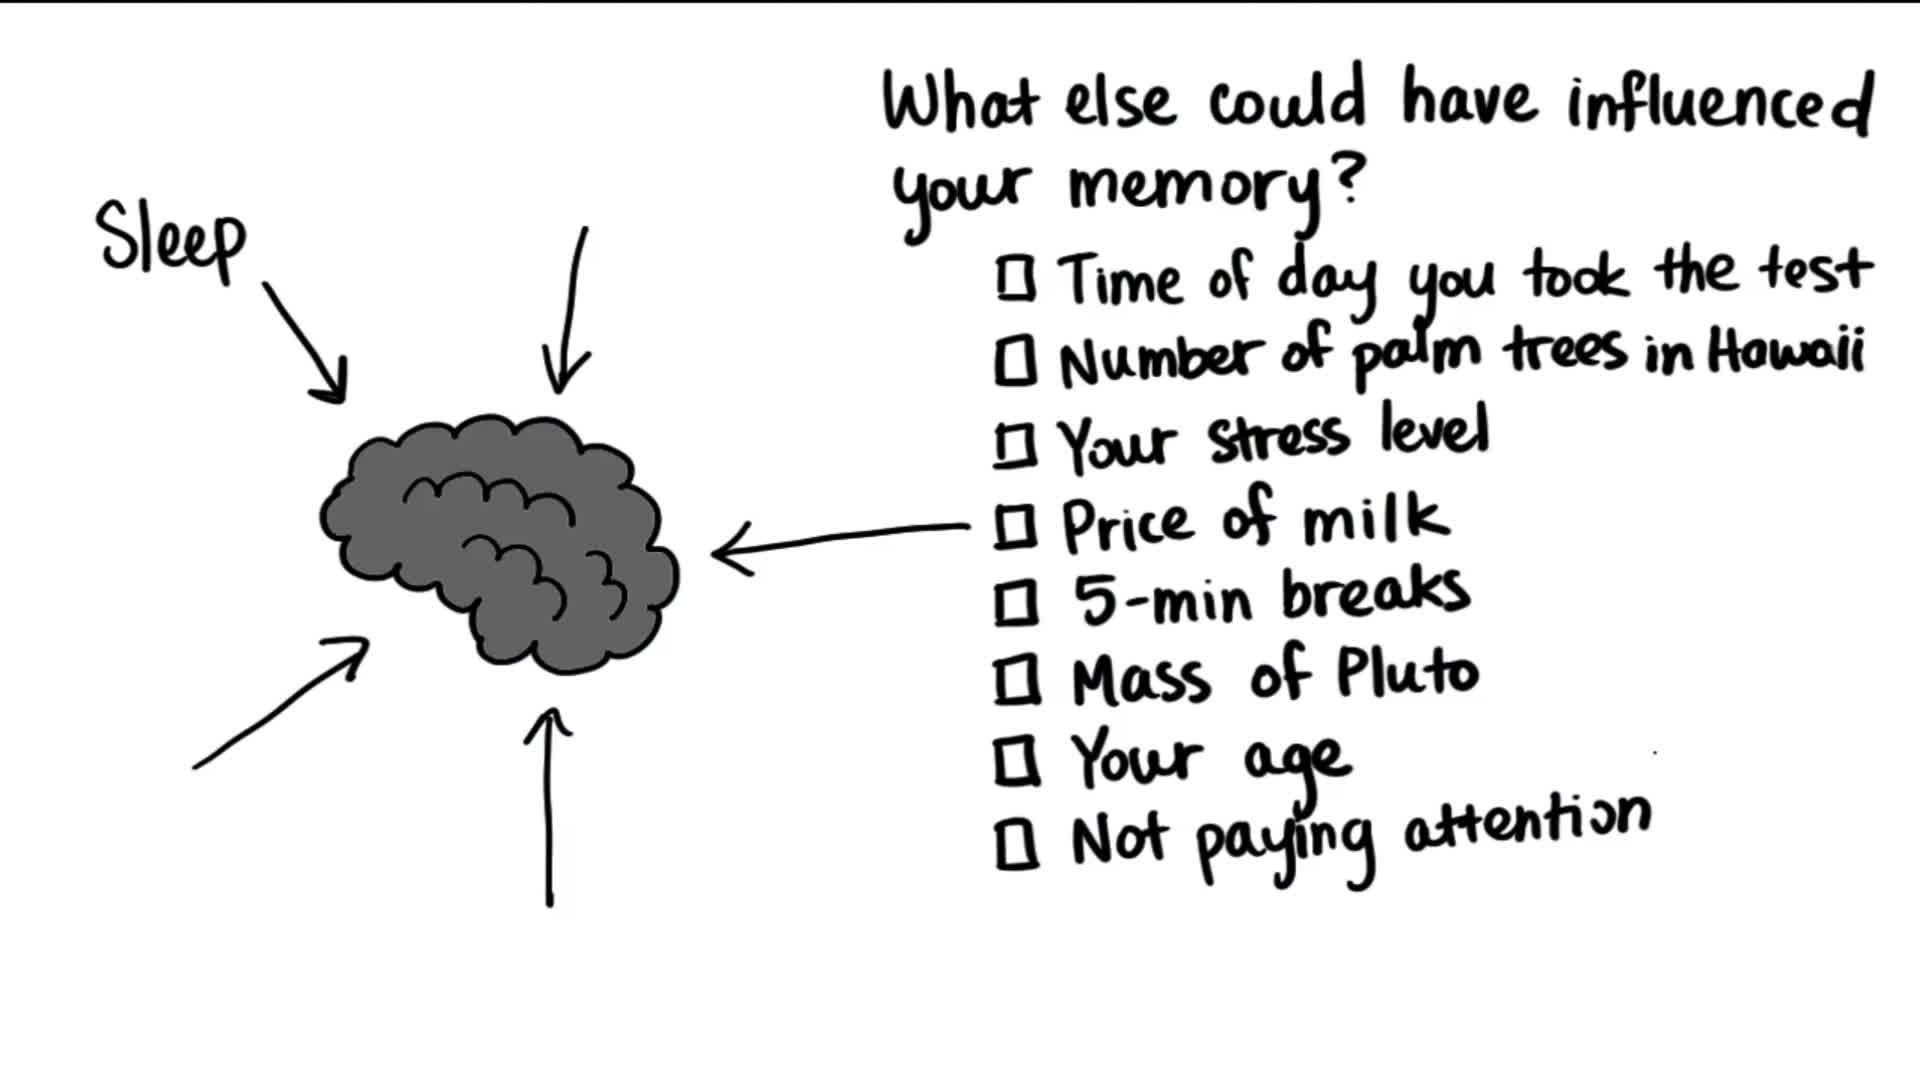 What else could have influenced
your memory?
Sleep
Time of day you took the test
Number of palm trees in Hawaii
Your stress level
Price of milk
5-min breaks
Mass of Pluto
Your age
Not paying attention